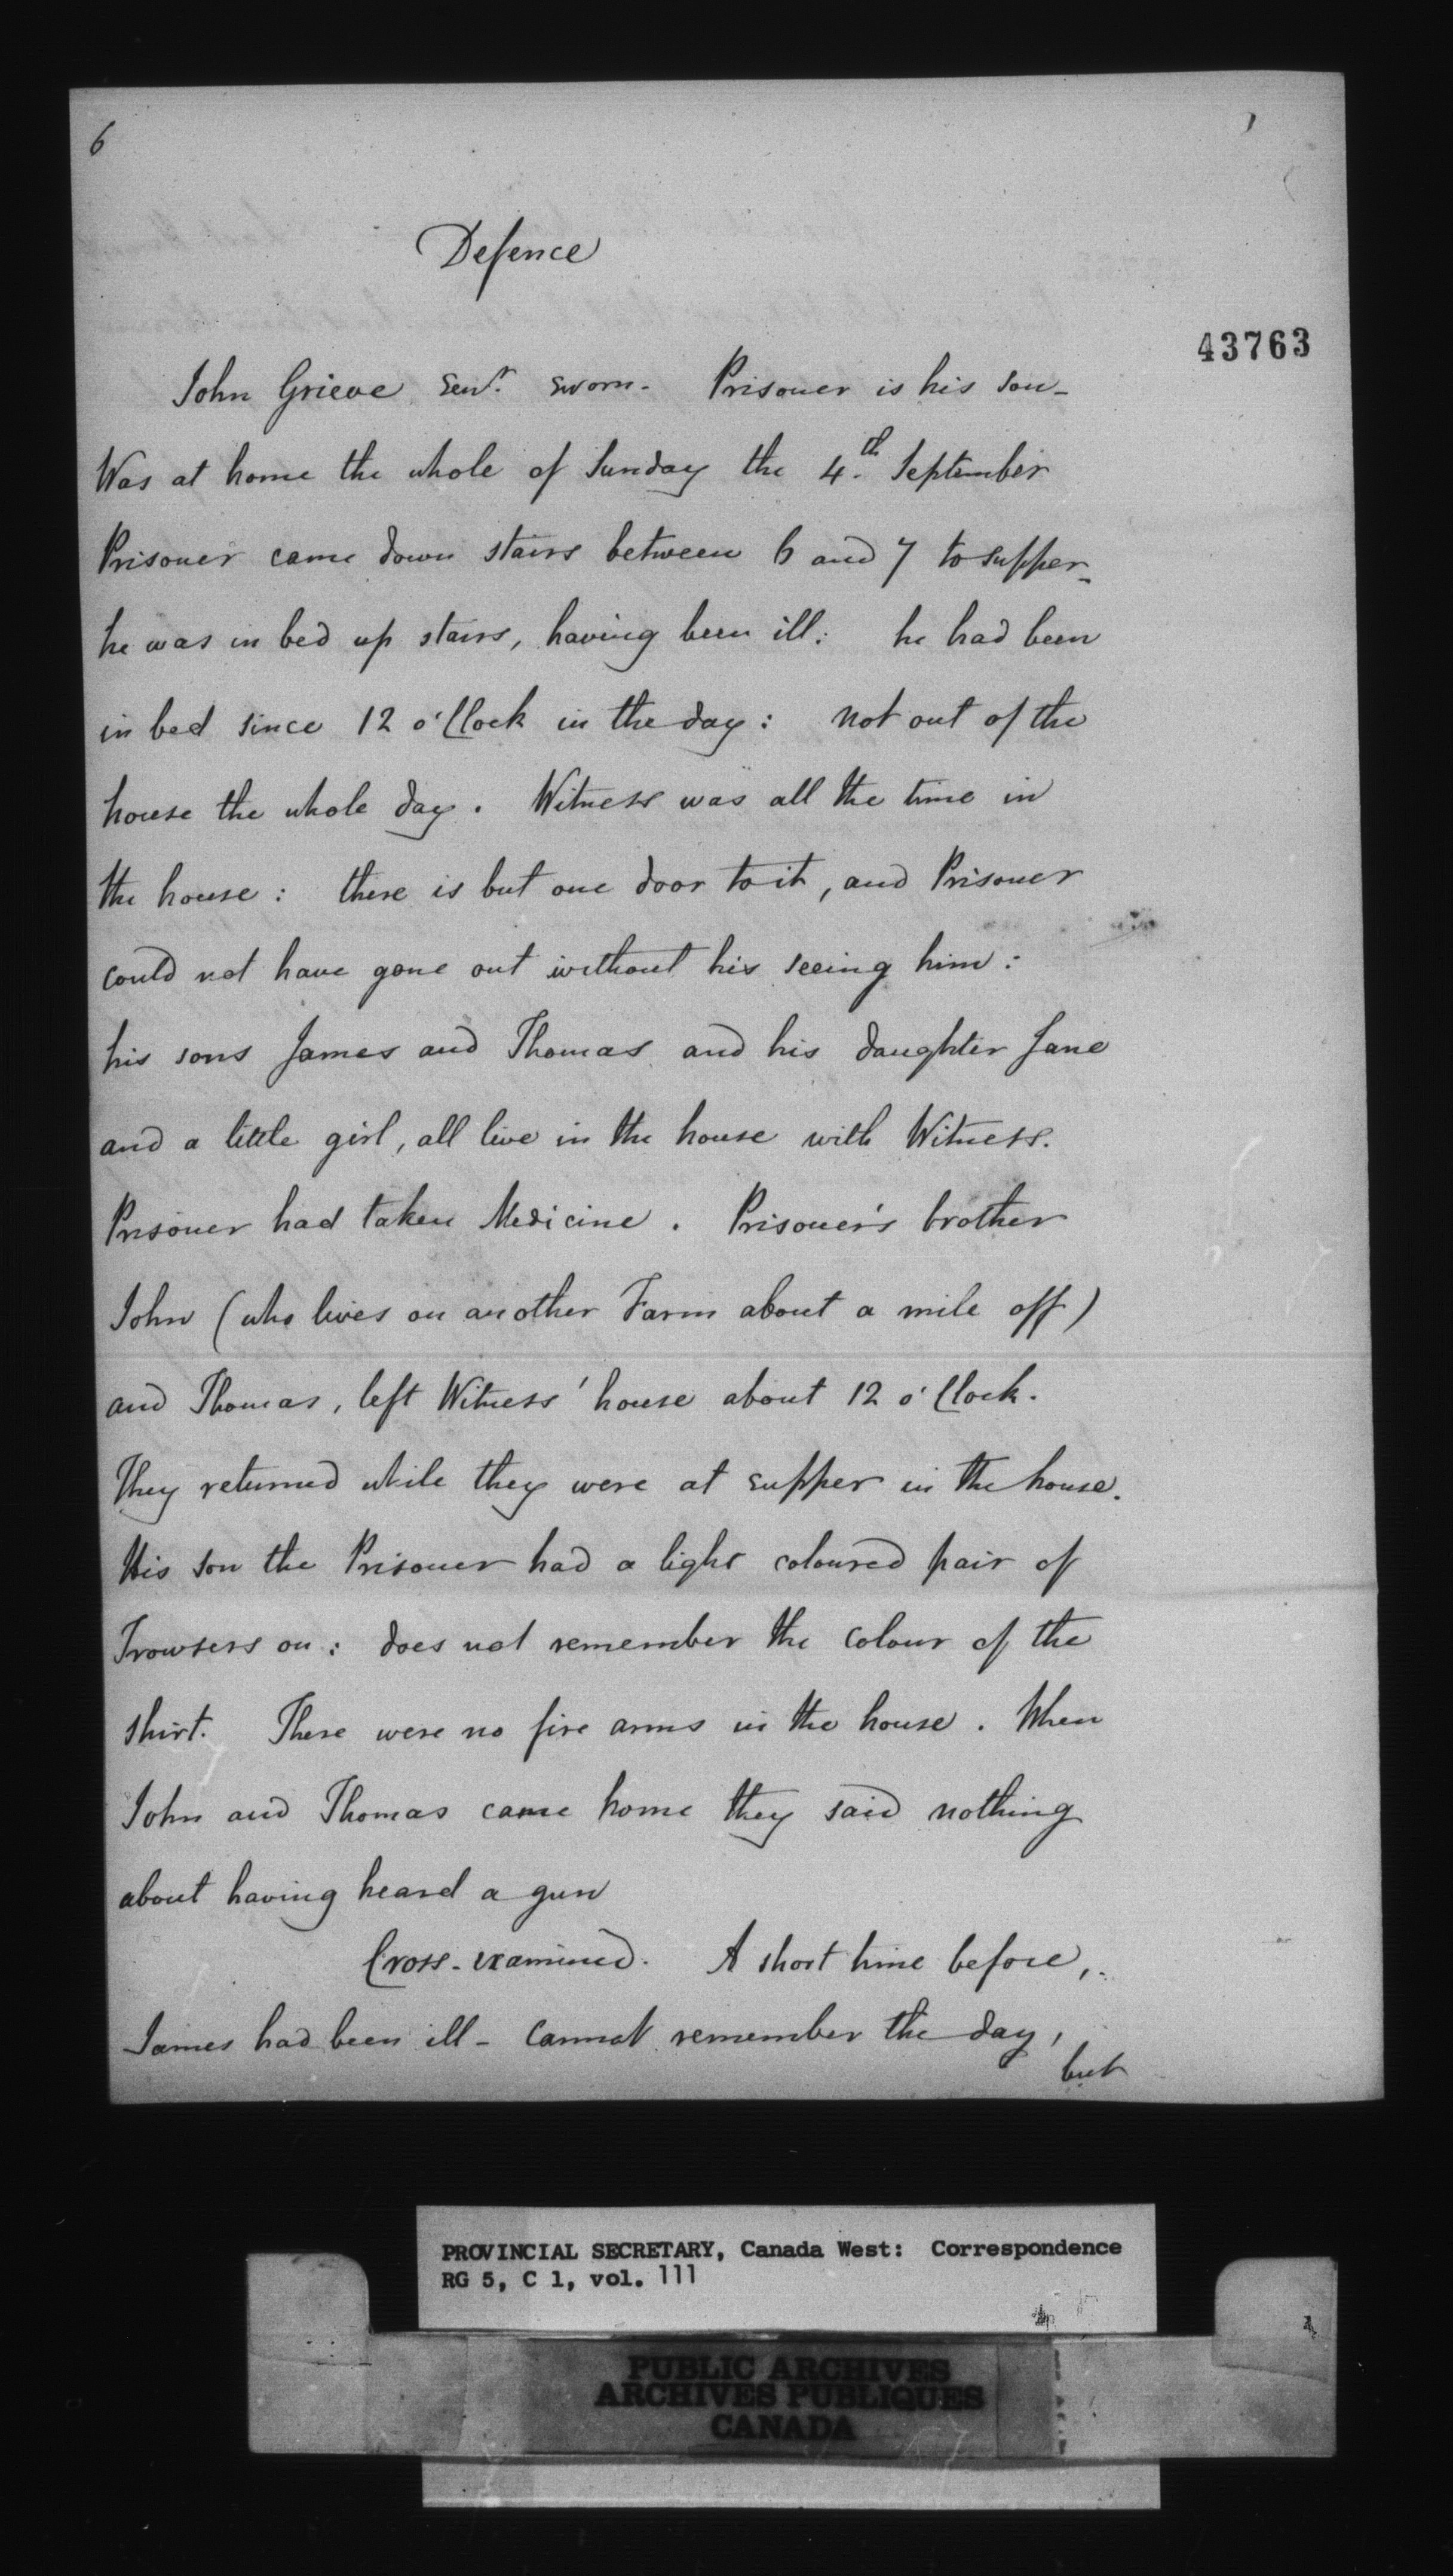 6
Defence
43763
John Grieve Senr. sworn. Prisoner is his son_
Was at home the whole of Sunday the 4th. September
Prisoner came down stairs between 6 and 7 to supper_
he was in bed up stairs, having been ill: he had been
in bed since 12 o'Clock in the day: not out of the
house the whole day. Witness was all the time in
the house: there is but one door to it, and Prisoner
could not have gone out without his seeing him:
his sons James and Thomas and his daughter Jane
and a little girl, all live in the house with Witness.
Prisoner had taken Medicine. Prisoner's brother
John (who lives on another Farm about a mile off)
and Thomas, left Witness' house about 12 o'Clock.
They returned while they were at supper in the house.
His son the Prisoner had a light coloured pair of
Trowsers on: does not remember the colour of the
shirt. There were no fire arms in the house. When
John and Thomas came home they said nothing
about having heard a gun
Cross-examined. A short time before,
James had been ill - cannot remember the day,
but
PROVINCIAL SECRETARY, Canada West: Correspondence
RG 5, C 1, vol. 111
PUBLIC ARCHIVES
ARCHIVES PUBLIQUES
CANADA